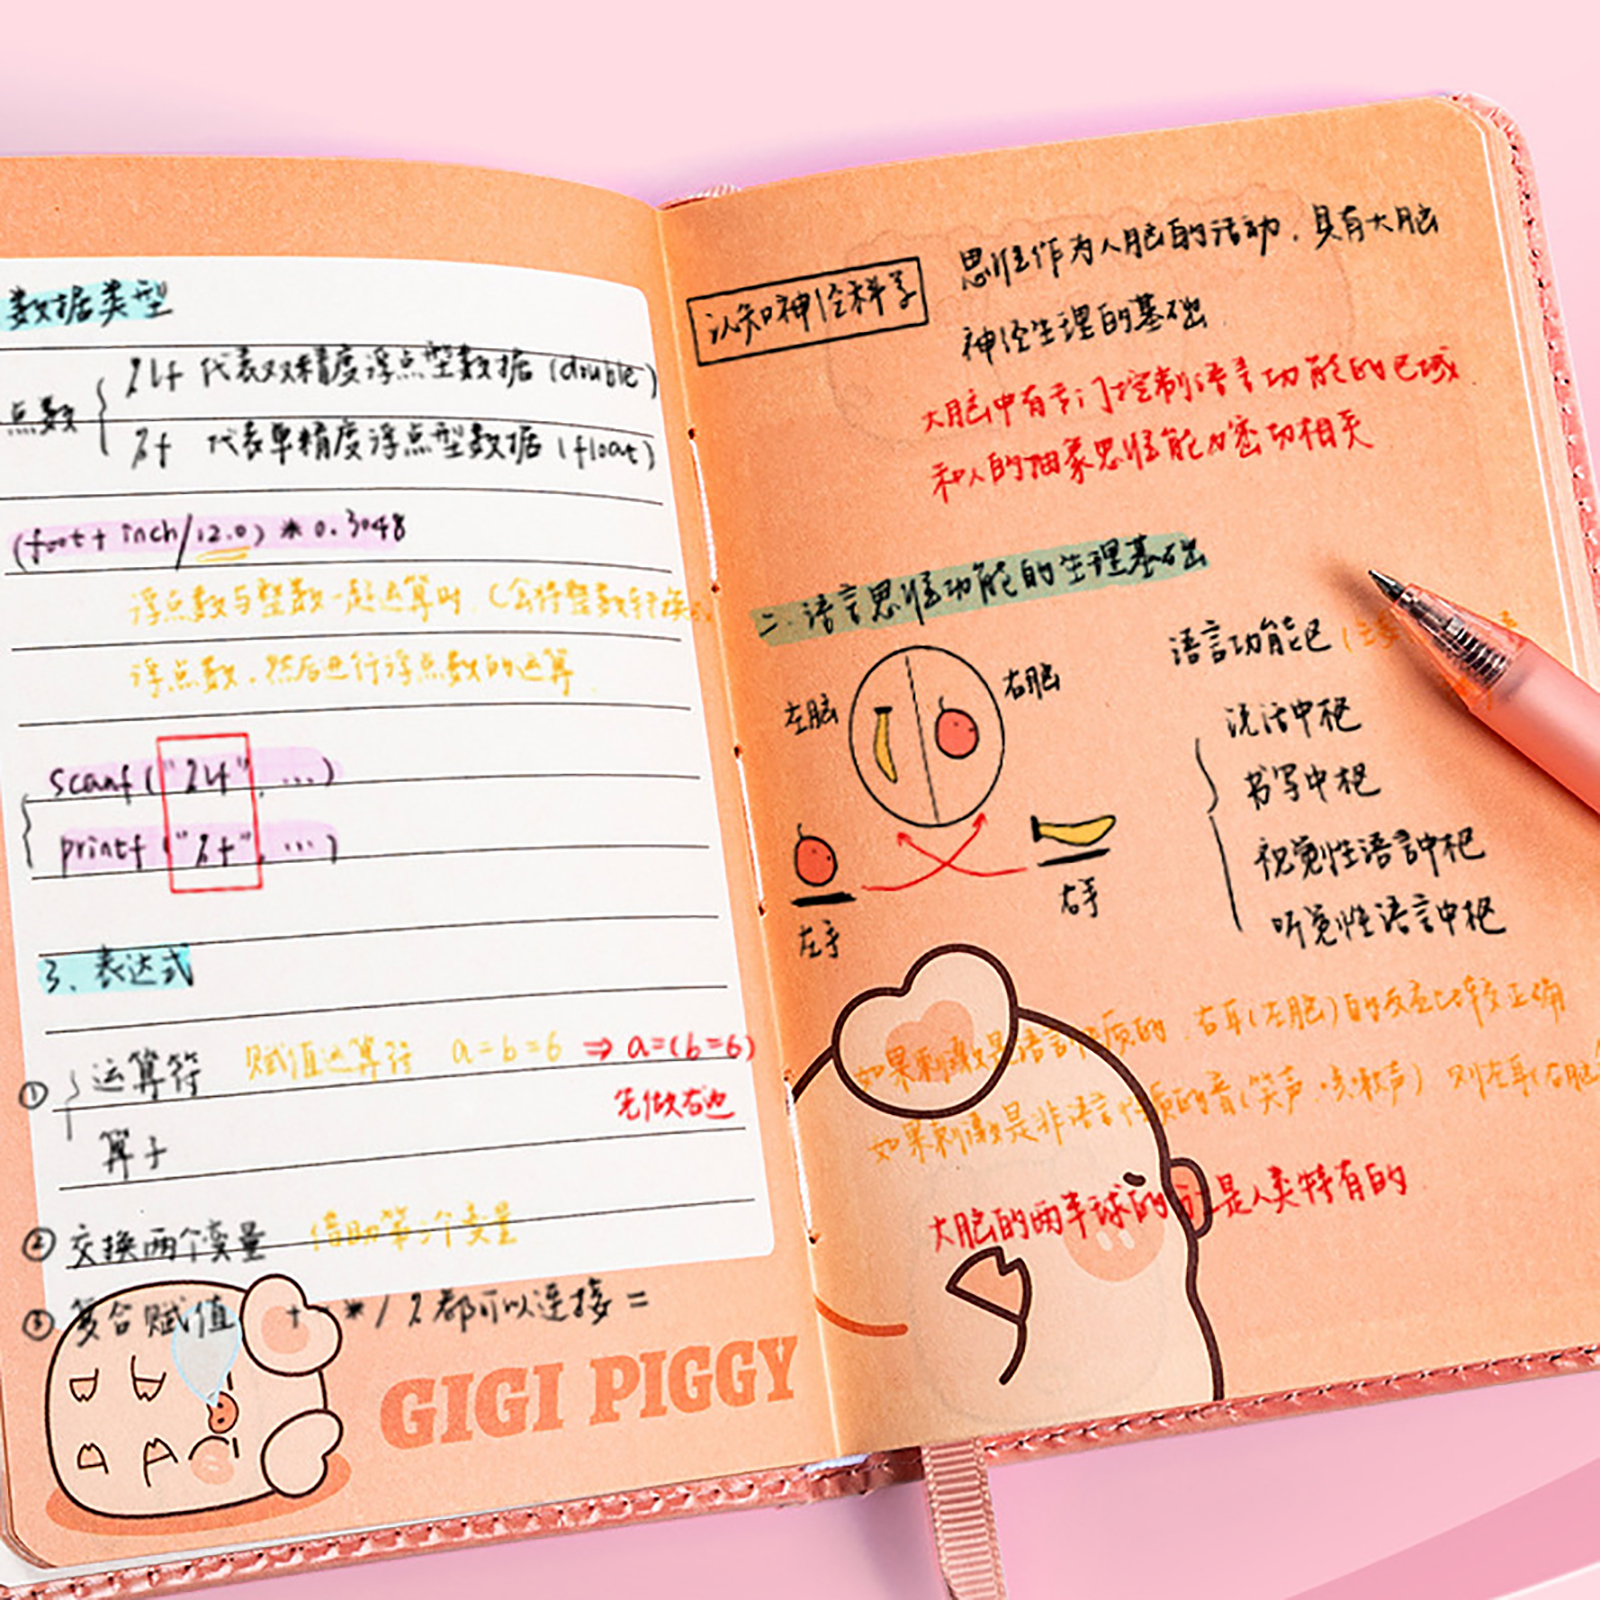 数据类型
点数
%lf 代表双精度浮点型数据 (double)
%f 代表单精度浮点型数据 (float)
(foot + inch/12.0) * 0.3048
浮点数与整数一起运算时,(会将整数转换成
浮点数,然后进行浮点数的运算
scanf ("%lf", ...)
printf ("%f", ...)
3. 表达式
① 运算符 赋值运算符 a=b=6 ⇒ a=(b=6)
先做右边
算子
② 交换两个变量 借助第三个变量
③ 复合赋值 + * / %都可以连接 =
GIGI PIGGY
认知神经科学
思维作为人脑的活动,具有大脑
神经生理的基础
大脑中有专门控制语言功能的区域
和人的抽象思维能力密切相关
二.语言思维功能的生理基础
左脑
右脑
左手
右手
语言功能区
说话中枢
书写中枢
视觉性语言中枢
听觉性语言中枢
如果刺激是语言性质的,右耳(左脑)的反应比较正确
如果刺激是非语言性质的音(笑声·咳嗽声) 则左耳(右脑
大脑的两半球的分工是人类特有的